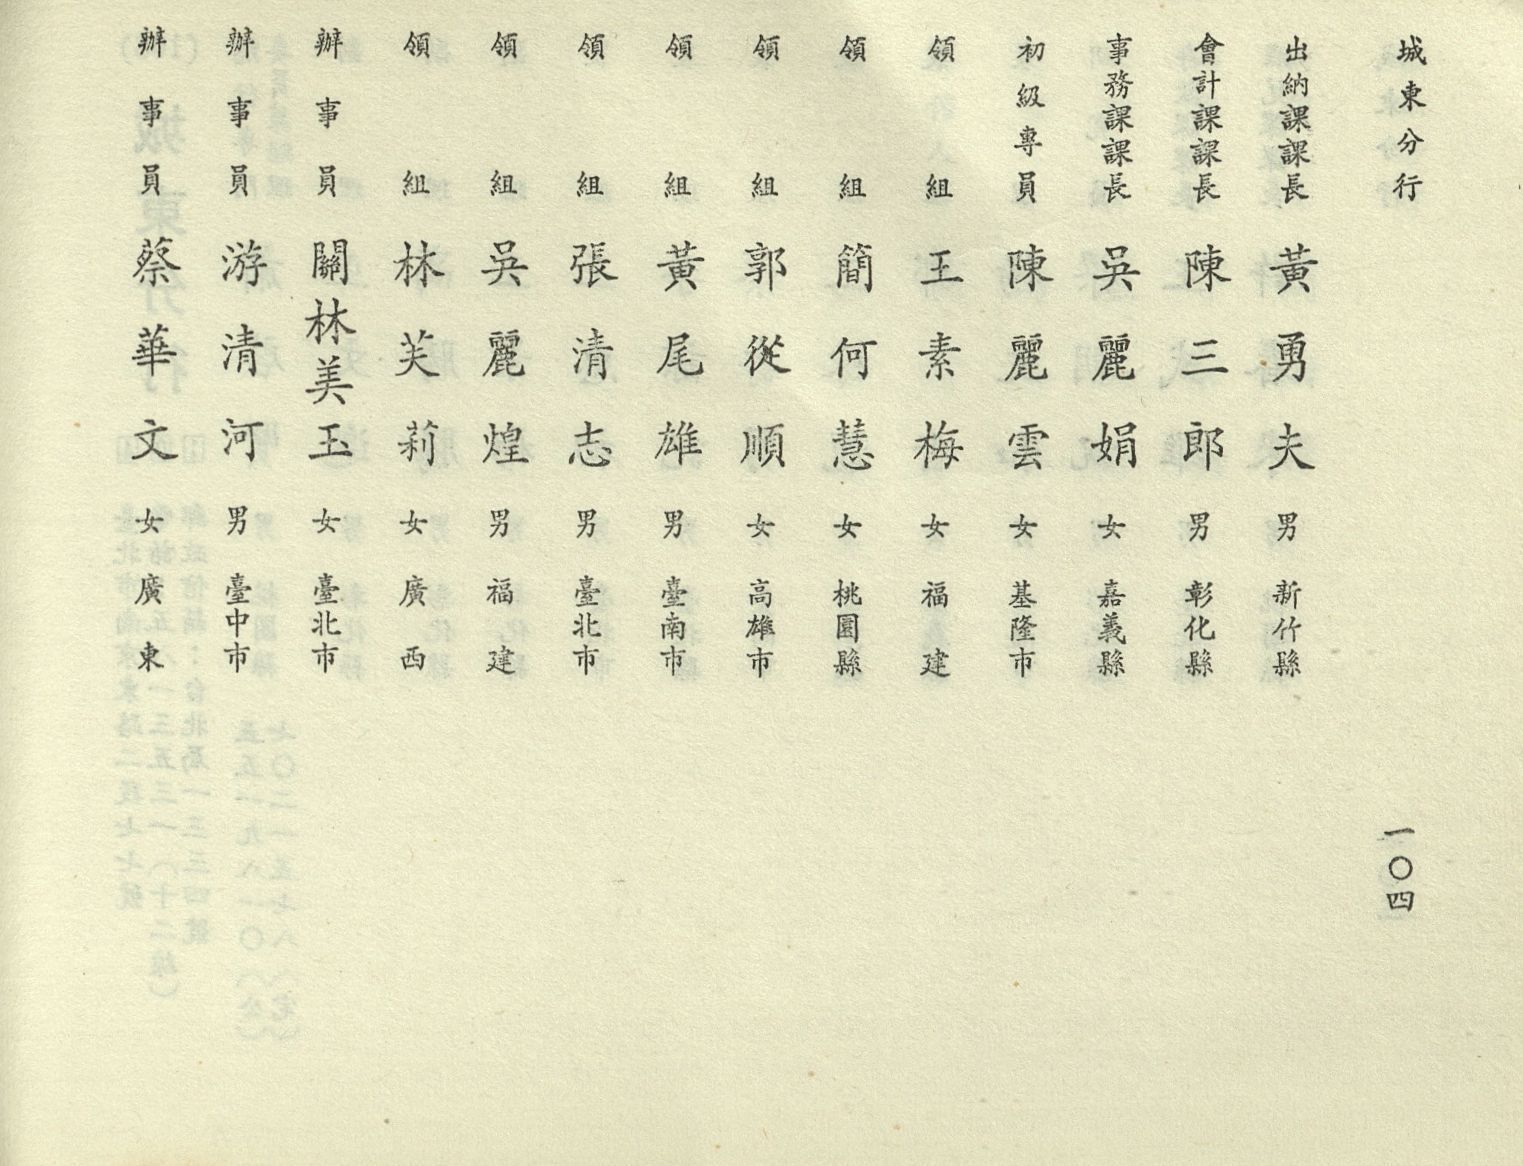 城東分行
一〇四
出納課課長 黃勇夫 男 新竹縣
會計課課長 陳三郎 男 彰化縣
事務課課長 吳麗娟 女 嘉義縣
初級專員 陳麗雲 女 基隆市
領組 王素梅 女 福建
領組 簡何慧 女 桃園縣
領組 郭從順 女 高雄市
領組 黃尾雄 男 臺南市
領組 張清志 男 臺北市
領組 吳麗煌 男 福建
領組 林芙莉 女 廣西
辦事員 關林美玉 女 臺北市
辦事員 游清河 男 臺中市
辦事員 蔡華文 女 廣東